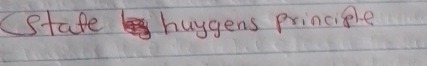 (State huygens principle